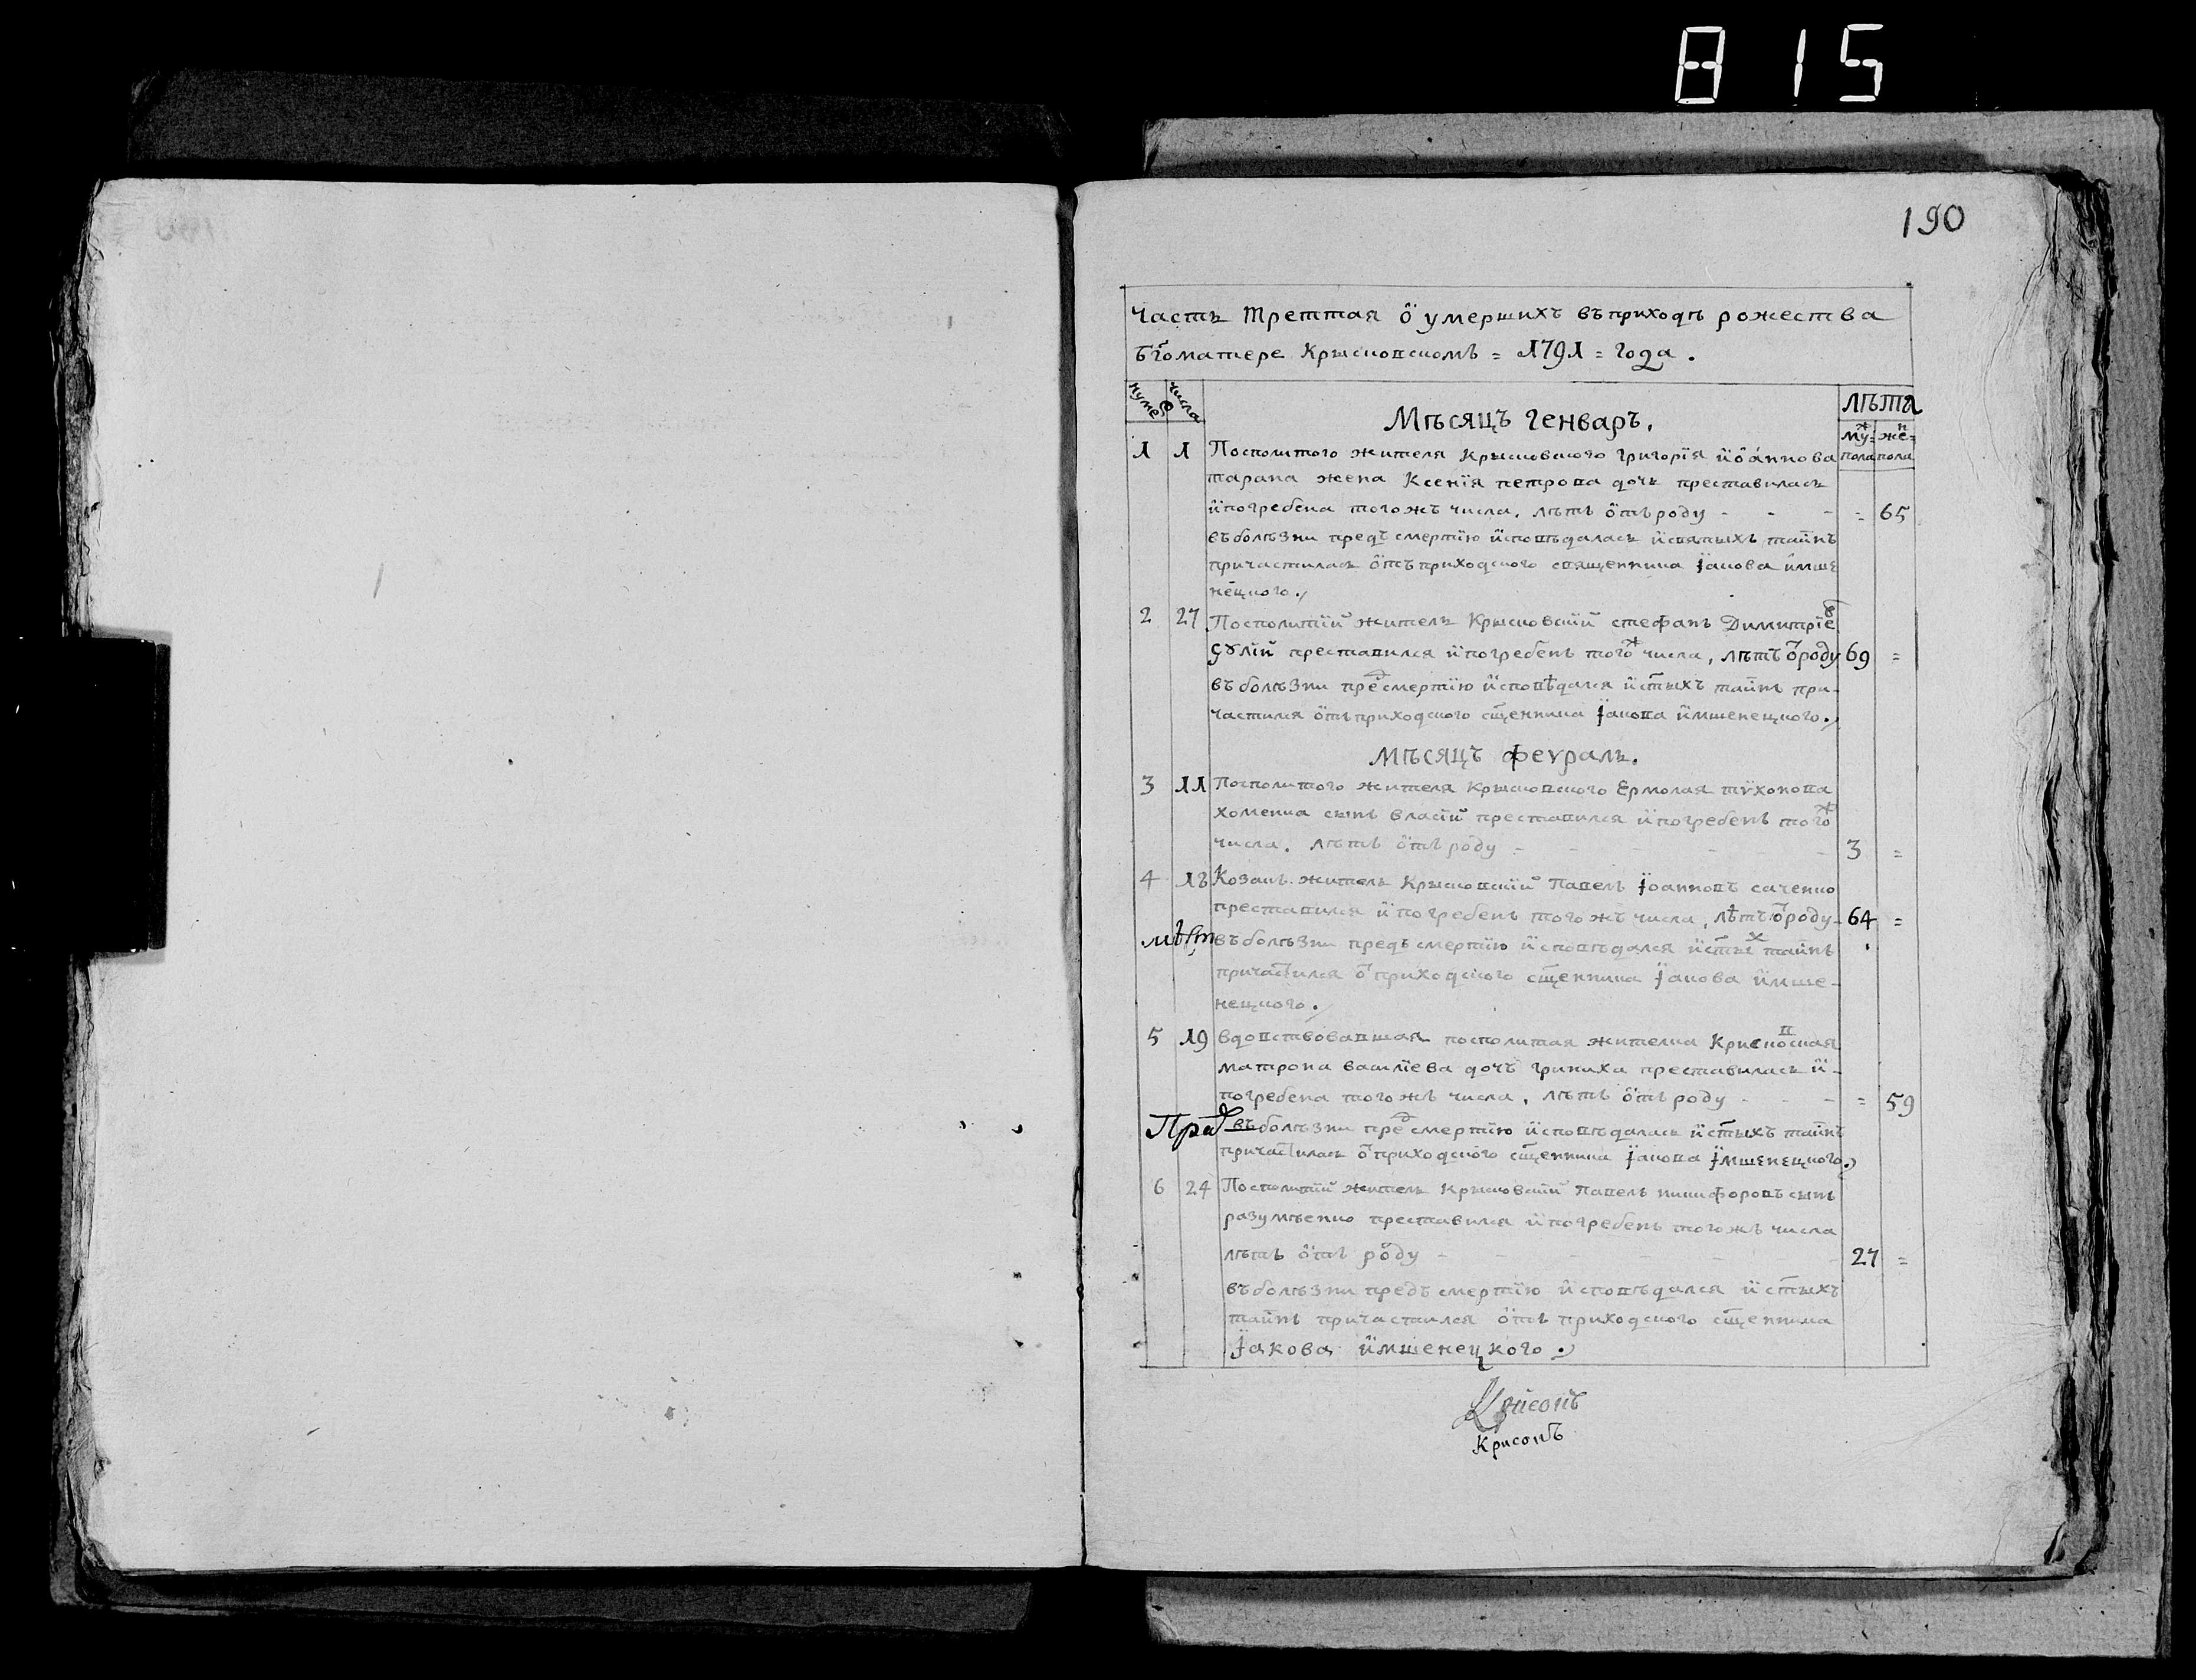 815
190
Часть Треттая ѻ умершихъ въ приходѣ рожества
бг҃оматере Крысковскомъ = 1791 = года.
нумер числа
лѣта
Мѣсяцъ Генварь.
муж = жен =
пола пола
1 1 Посполитого жителя Крысковского Григорїя иѻаннова
тарана жена Ксенїя петрова дочь преставилась
и погребена того жъ числа. лѣтъ ѻтъ роду - - - = 65
въ болѣзни предъ смертїю исповѣдалась и святыхъ таинъ
причастилась ѻтъ приходского священника Іакова имше
нецкого.
2 27 Посполитїй житель Крысковскїй стефанъ Димитрїев
Сулїй преставился и погребенъ того ж числа, лѣтъ ѻт роду 69 =
въ болѣзни пред смертїю исповѣдался и с҃тыхъ таинъ при-
частился ѻтъ приходского сщ҃енника Іакова имшенецкого.
Мѣсяцъ феѵраль.
3 11 Посполитого жителя Крысковского Ермолая тѵхонова
хоменка сынъ власїй преставился и погребенъ того ж
числа. лѣтъ ѻтъ роду - - - - - 3 =
4 18 Козакъ житель Крысковскїй Павелъ Іоанновъ саченко
преставился и погребенъ того жъ числа, лѣтъ ѻт роду - 64 =
въ болѣзни предъ смертїю исповѣдался и с҃тых таинъ
причастился ѻт приходского сщ҃енника Іакова имше-
нецкого.
5 19 вдовствовавшая посполитая жителка Крисковская
матрона василїева дочъ гриниха преставилась и-
погребена того жъ числа, лѣтъ ѻтъ роду - - - = 59
въ болѣзни пред смертїю исповѣдалась и с҃тыхъ таинъ
причастилась ѻт приходского сщ҃енника Іакова Імшенецкого.
6 24 Посполитїй житель Крысковскїй Павелъ никифоровъ сынъ
разумѣенко преставился и погребенъ того жъ числа
лѣтъ ѻтъ роду - - - - 27 =
въ болѣзни предъ смертїю исповѣдался и с҃тыхъ
таинъ причастился ѻтъ приходского сщ҃енника
Іакова имшенецкого.